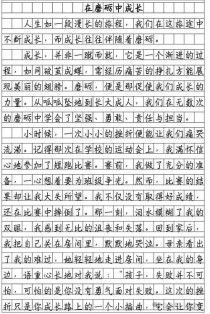 在磨砺中成长
人生如一段漫长的旅程，我们在这旅途中
不断成长，而成长往往伴随着磨砺。
成长，并非一蹴而就，它是一个渐进的过
程，如同破茧成蝶，需经历痛苦的挣扎方能展
现美丽的翅膀。磨砺，便是那促使我们成长的
力量。从呱呱坠地到长大成人，我们在无数次
的磨砺中学会了坚强、勇敢、责任与担当。
小时候，一次小小的挫折便能让我们痛哭
流涕。记得那次在学校的运动会上，我满怀信
心地参加了短跑比赛。赛前，我做了充分的准
备，一心想着要为班级争光。然而，比赛的结
果却让我大失所望。我不仅没有取得好成绩，
还在比赛中摔倒了。那一刻，泪水模糊了我的
双眼，我感到无比的沮丧和失落。回到家后，
我把自己关在房间里，默默地哭泣。母亲看出
了我的难过，她轻轻地走进房间，坐在我的身
边，语重心长地对我说：“孩子，失败并不可
怕，可怕的是你没有勇气面对失败。这次的挫
折只是你成长路上的一个小插曲，它会让你变